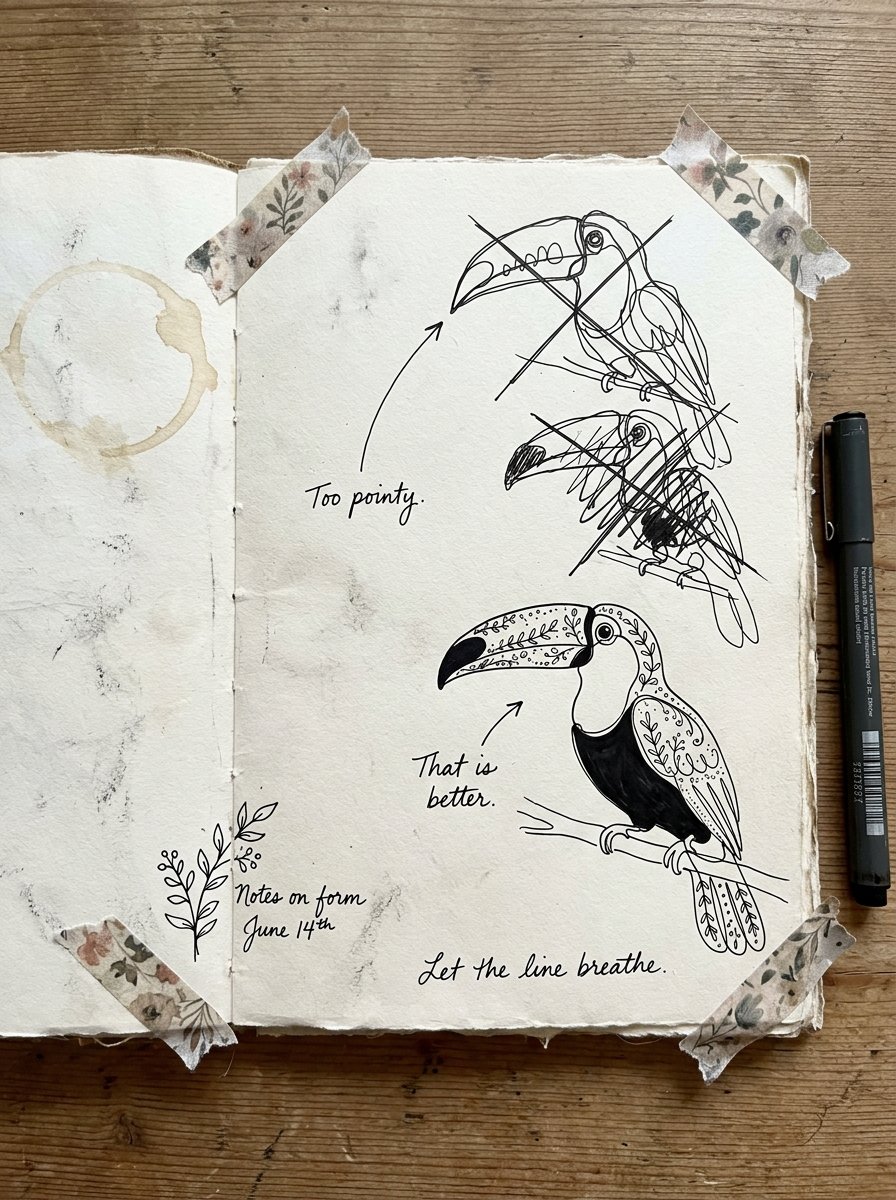 Too pointy.
That is
better.
Notes on form
June 14th
Let the line breathe.